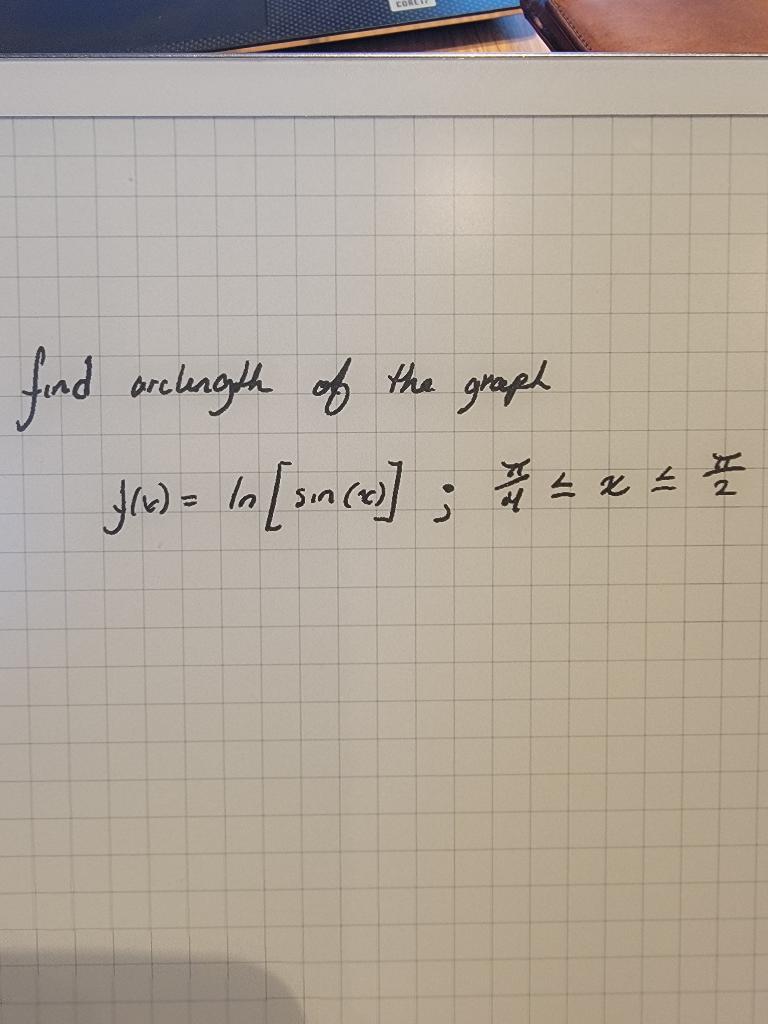 find arclength of the graph
f(x) = ln[sin(x)] ; π/4 ≤ x ≤ π/2